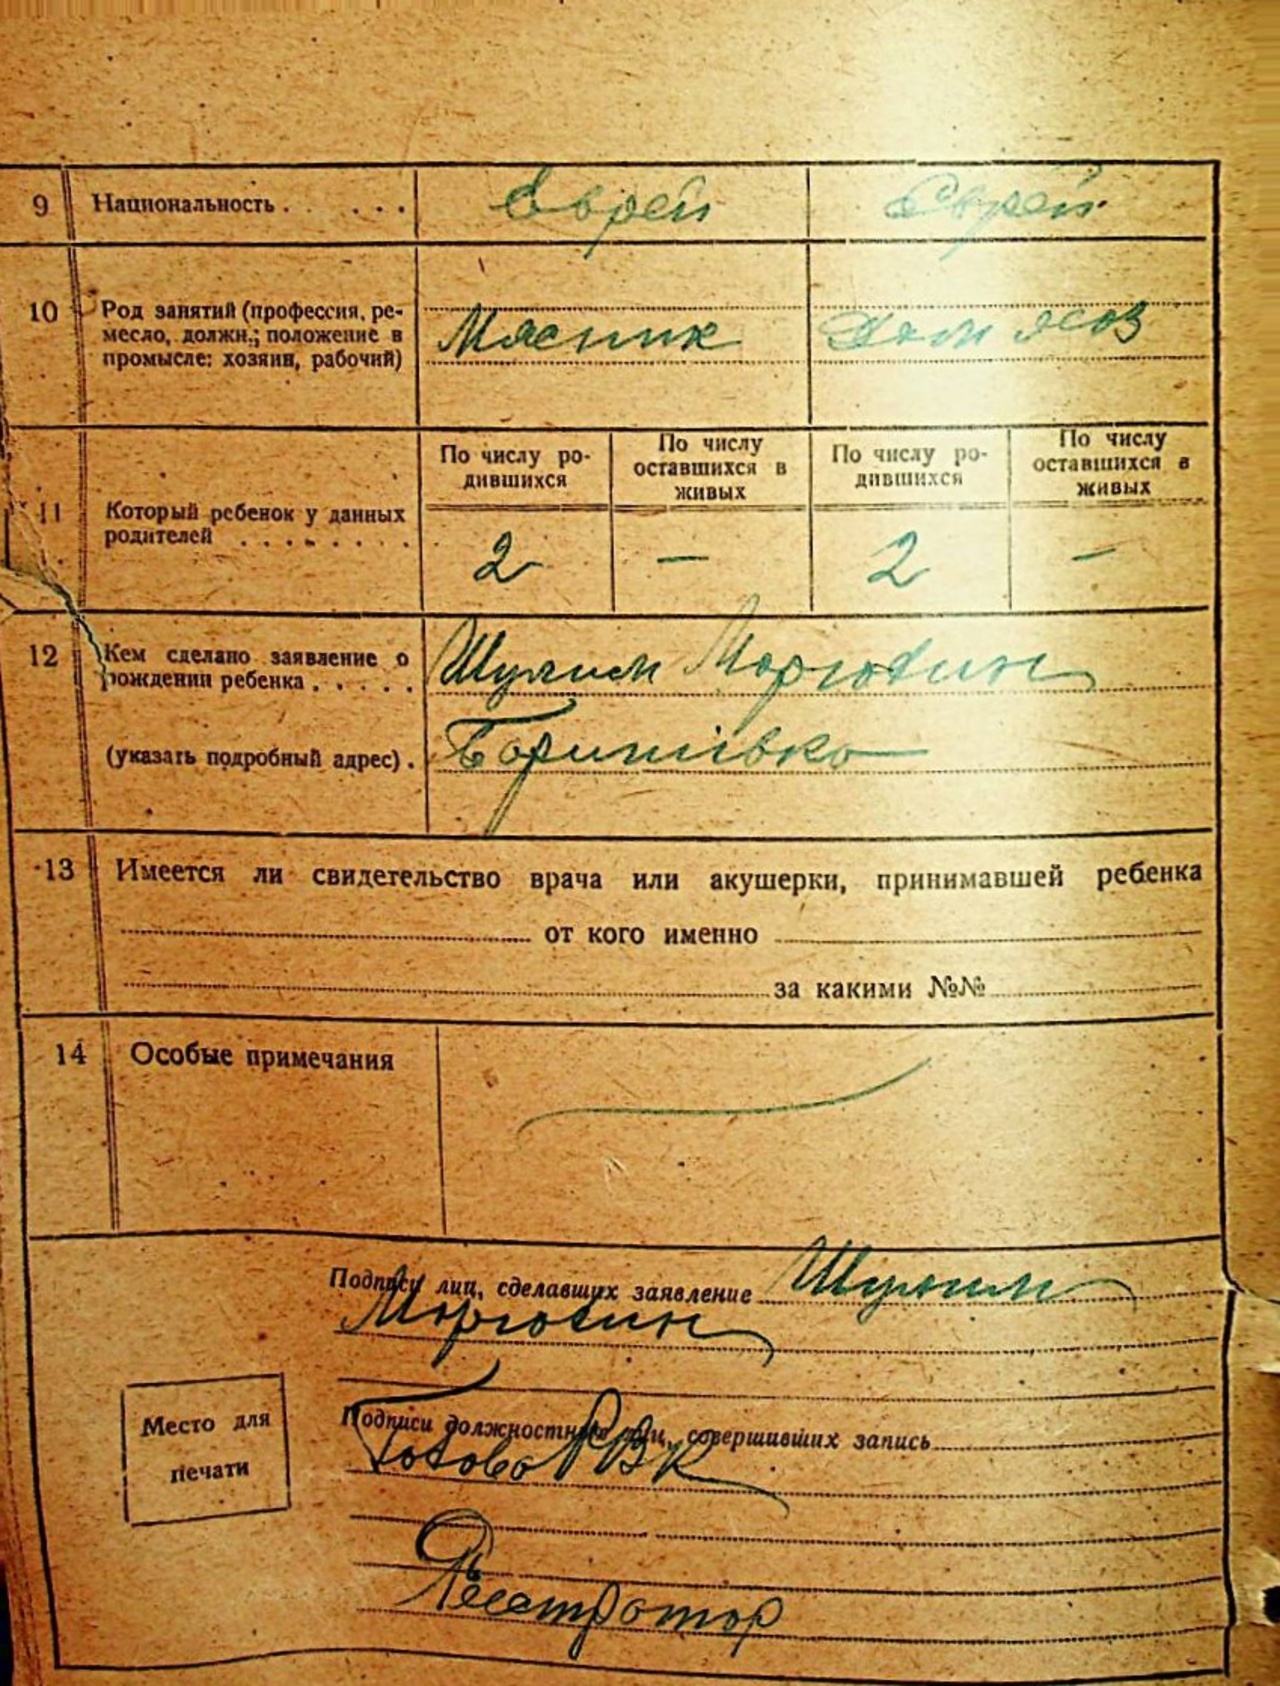 9 Национальность . . . . . Еврей Еврей
10 Род занятий (профессия, ре-
месло, должн.; положение в
промысле: хозяин, рабочий)
Мясник Дом
По числу ро-
дившихся
По числу
оставшихся в
живых
По числу ро-
дившихся
По числу
оставшихся в
живых
11 Который ребенок у данных
родителей . . . . . . . .
2 — 2 —
12 Кем сделано заявление о
рождении ребенка . . . . .
Шулим
(указать подробный адрес) .
13 Имеется ли свидетельство врача или акушерки, принимавшей ребенка
от кого именно
за какими №№
14 Особые примечания
Подписи лиц, сделавших заявление Шулим
Место для
печати
Подписи должностных лиц, совершивших запись
Голова РВК